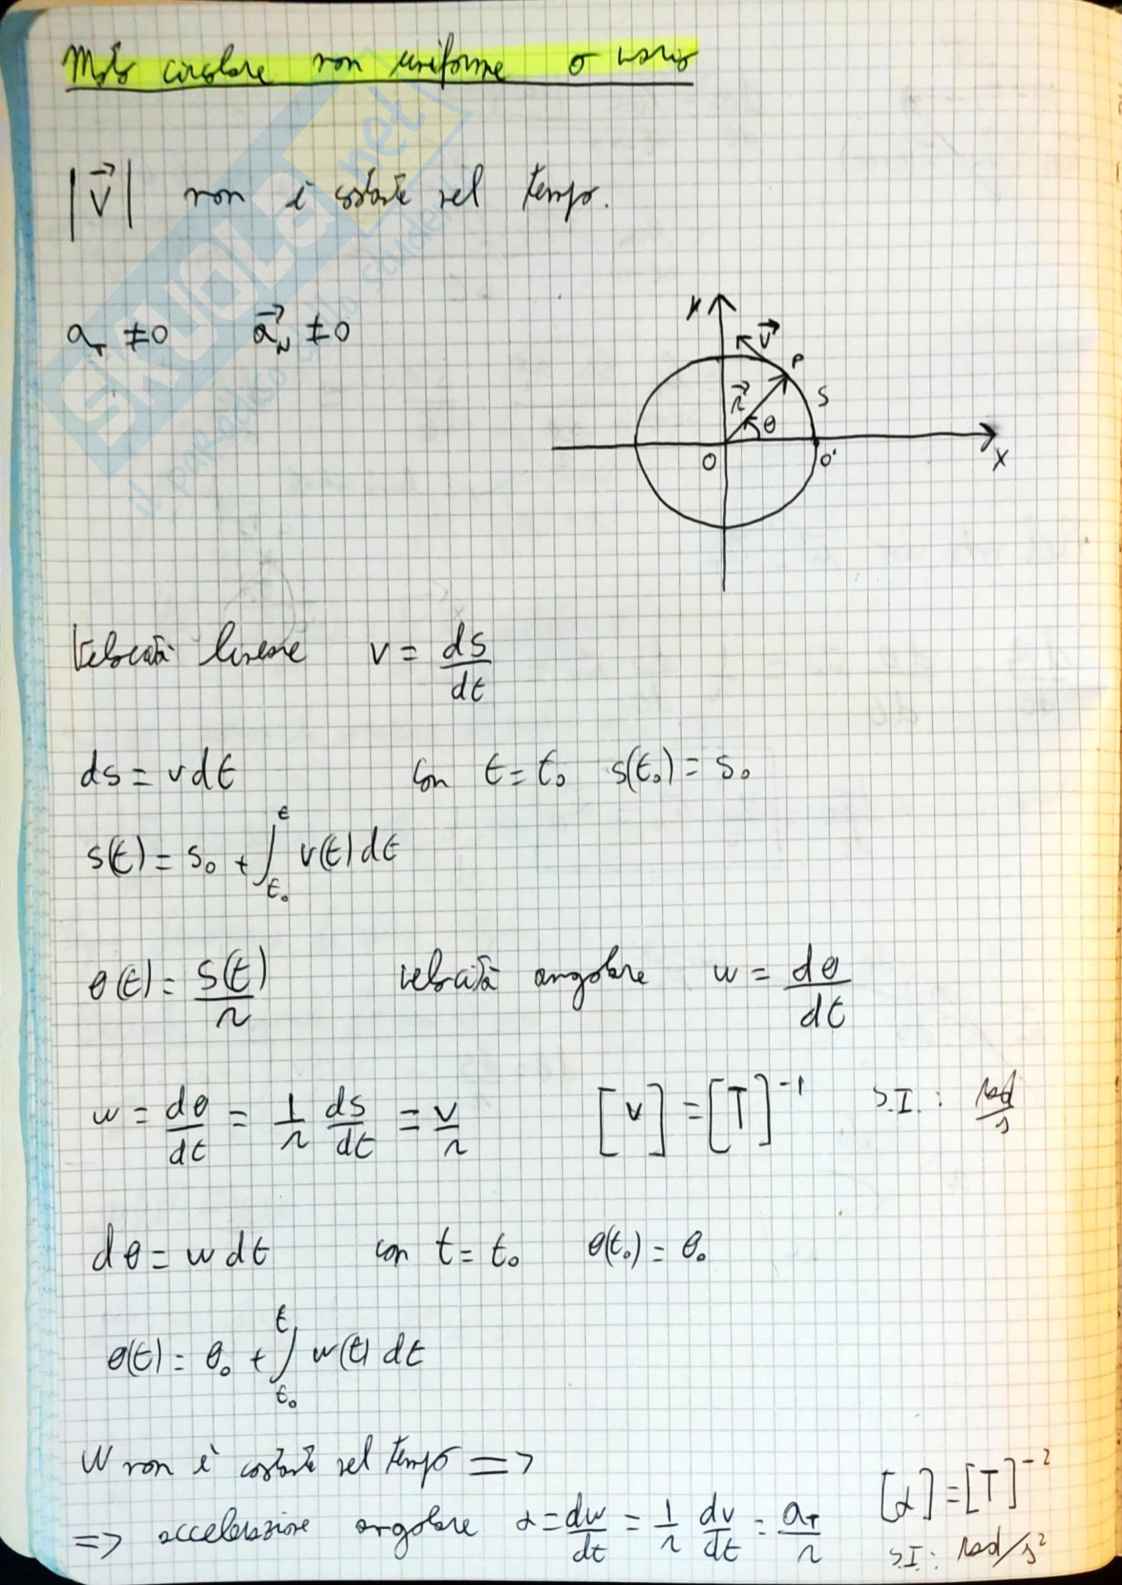 Moto circolare non uniforme o vario
|v⃗| non è costante nel tempo.
a_T ≠ 0 a⃗_N ≠ 0
y
v⃗
P
r⃗
S
θ
O
O'
x
Velocità lineare v = ds/dt
ds = v dt con t = t₀ s(t₀) = s₀
s(t) = s₀ + ∫_{t₀}^{t} v(t) dt
θ(t) = S(t)/r velocità angolare w = dθ/dt
w = dθ/dt = 1/r ds/dt = v/r [v] = [T]⁻¹ S.I.: rad/s
dθ = w dt con t = t₀ θ(t₀) = θ₀
θ(t) = θ₀ + ∫_{t₀}^{t} w(t) dt
W non è costante nel tempo =>
=> accelerazione angolare α = dw/dt = 1/r dv/dt = a_T/r [α] = [T]⁻²
S.I.: rad/s²
SKUOLA.net
il paradiso dello studente